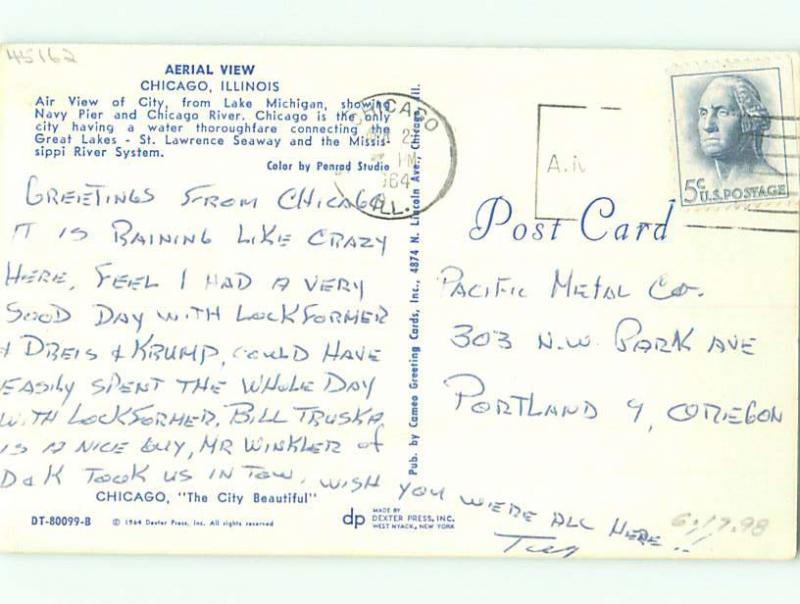 45162
AERIAL VIEW
CHICAGO, ILLINOIS
Air View of City, from Lake Michigan, showing
Navy Pier and Chicago River. Chicago is the only
city having a water thoroughfare connecting the
Great Lakes - St. Lawrence Seaway and the Missis-
sippi River System.
Color by Penrod Studio
GREETINGS FROM CHICAGO
IT IS RAINING LIKE CRAZY
HERE, FEEL I HAD A VERY
GOOD DAY WITH LOCKFORMER
& DREIS & KRUMP, COULD HAVE
EASILY SPENT THE WHOLE DAY
WITH LOCKFORMER, BILL TRUSKA
IS A NICE GUY, MR WINKLER of
D & K TOOK US IN TOW. WISH YOU WERE ALL HERE!!
CHICAGO, "The City Beautiful"
DT-80099-B
© 1964 Dexter Press, Inc. All rights reserved
dp
MADE BY
DEXTER PRESS, INC.
WEST NYACK, NEW YORK
Pub. by Cameo Greeting Cards, Inc., 4874 N. Lincoln Ave., Chicago, Ill.
CHICAGO
2
PM
1964
ILL.
5c
U.S. POSTAGE
Post Card
PACIFIC METAL Co.
303 N.W. PARK AVE
PORTLAND 9, OREGON
6.17.98